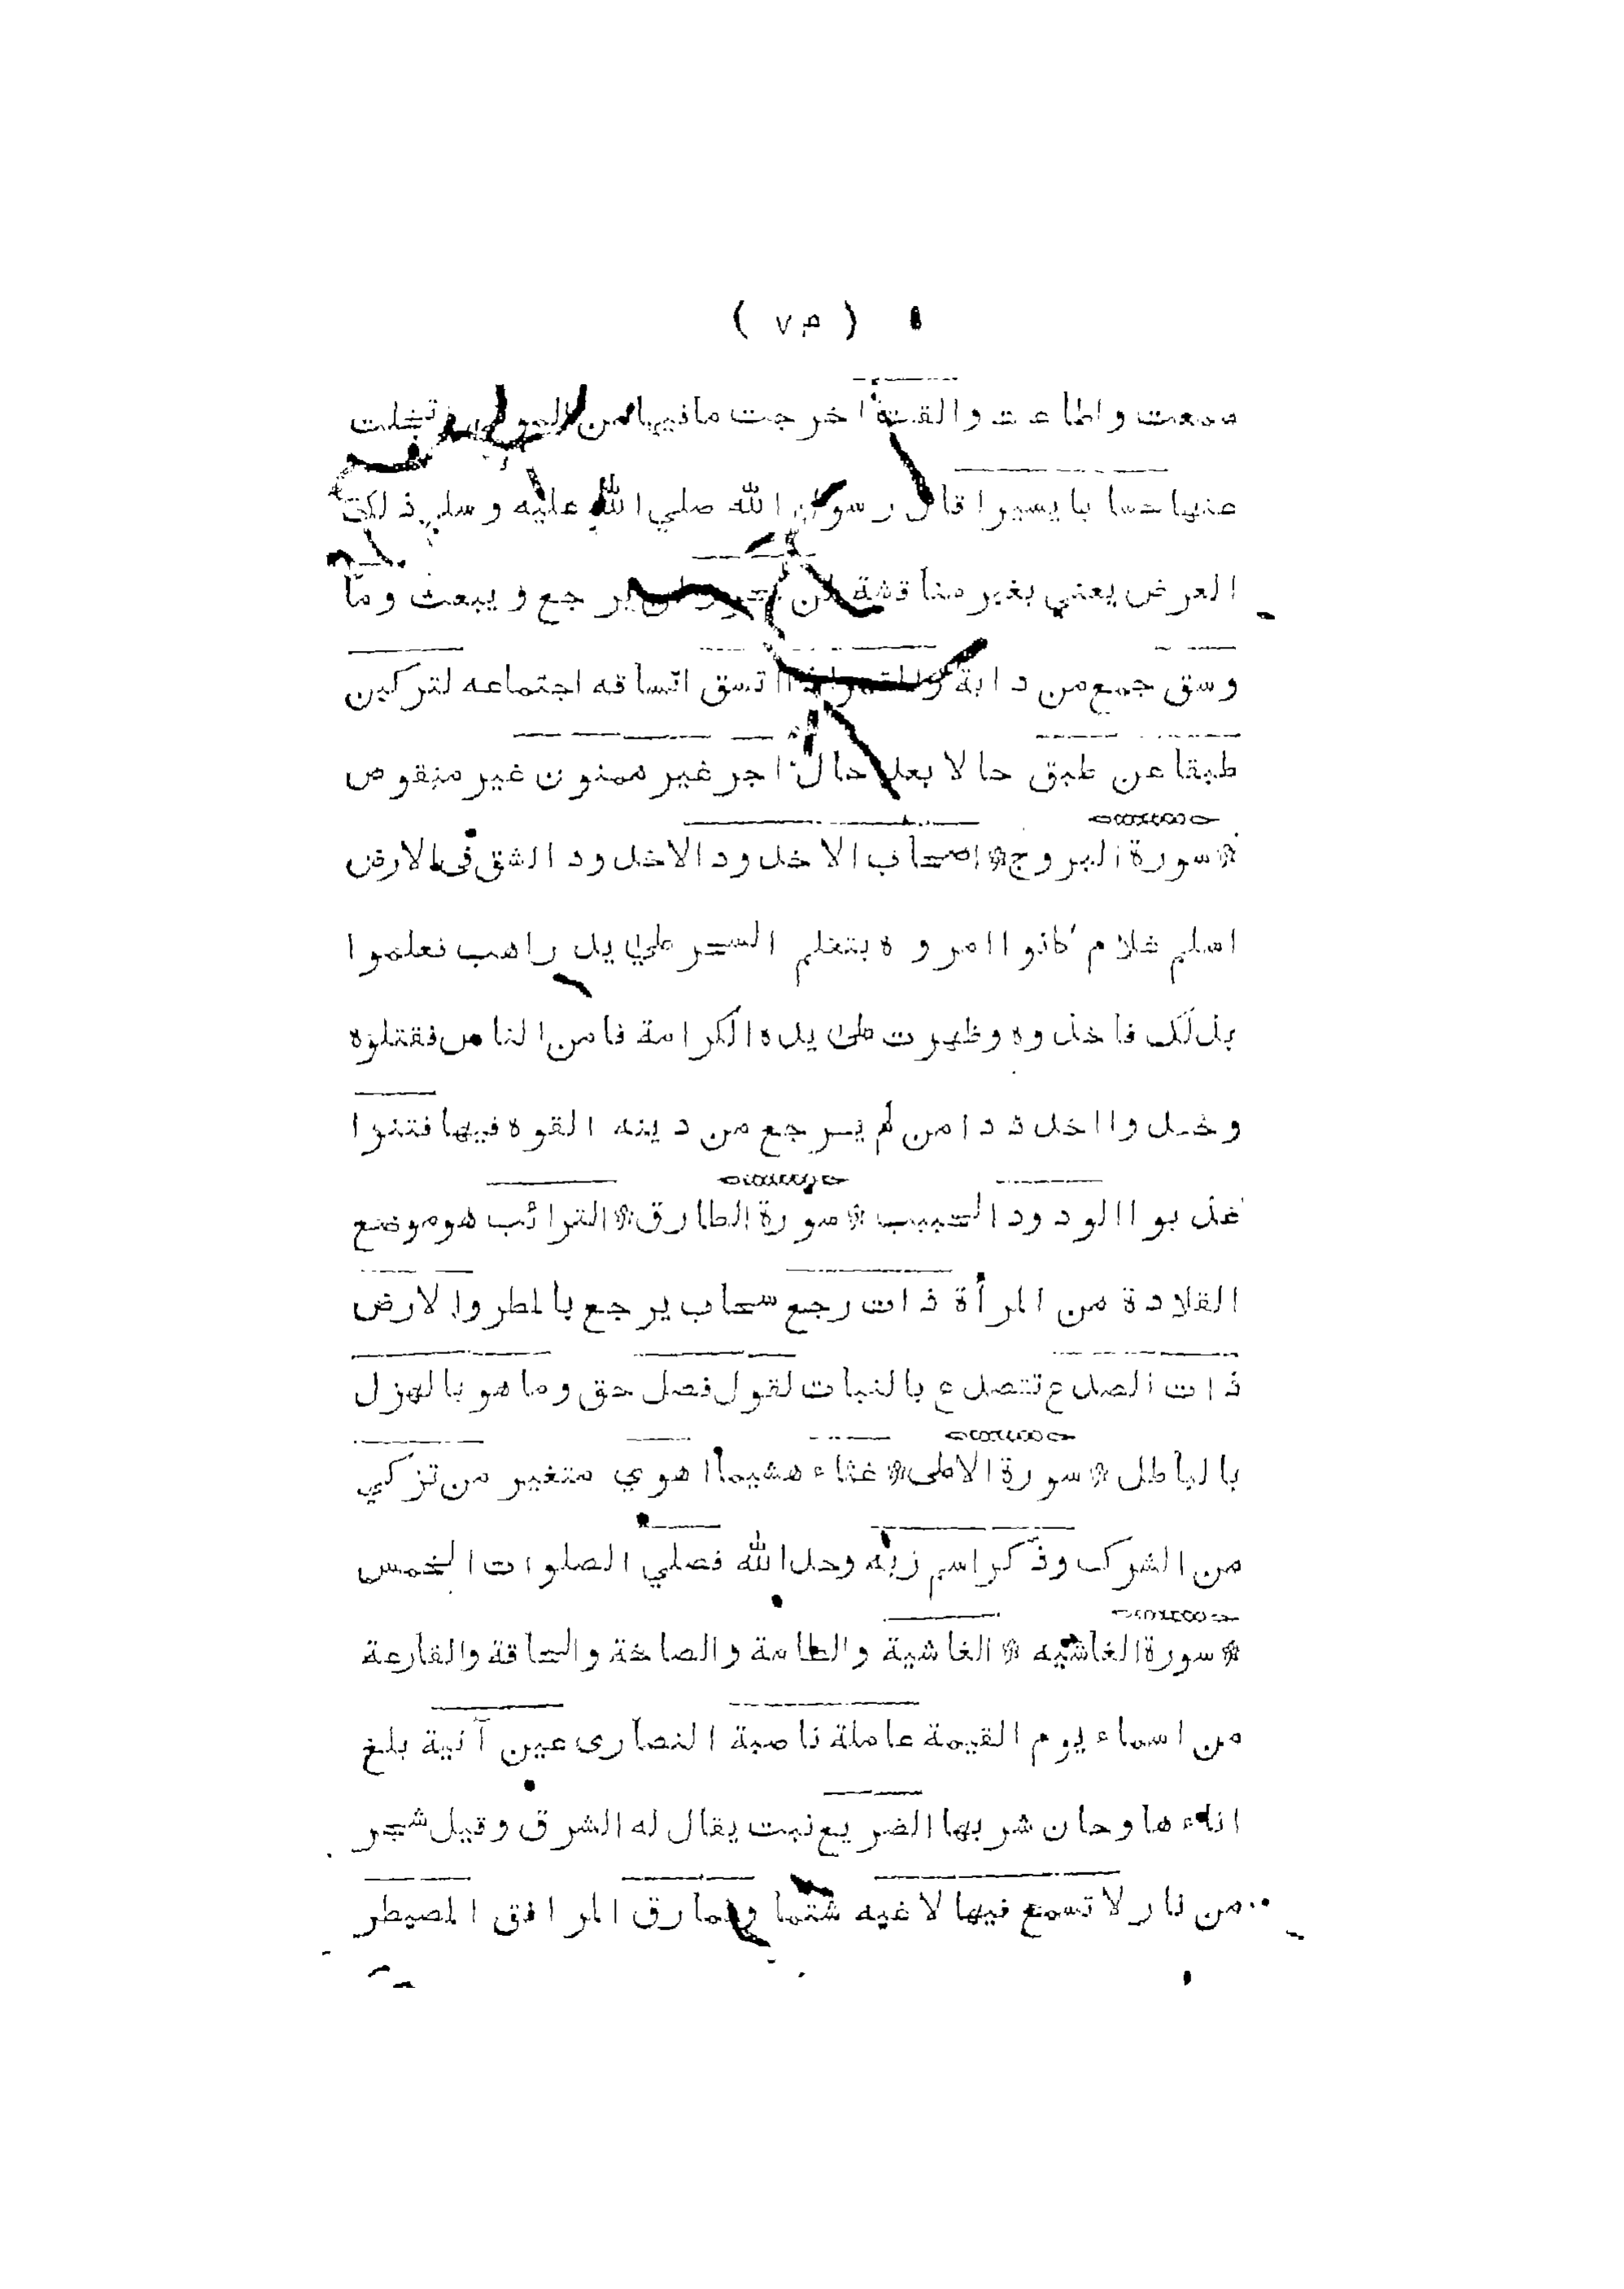 ( ٧٣ )
سمعت واطاعت والقت اخرجت ما فيها من الموتى وتخلت
عنها حسابا يسيرا قال رسول الله صلي الله عليه وسلم ذلك
العرض يعني بغير مناقشة لن يحور لن يرجع ويبعث وما
وسق جمع من دابة والقمر اذا اتسق اتساقه اجتماعه لتركبن
طبقا عن طبق حالا بعد حال اجر غير ممنون غير منقوص
* سورة البروج * اصحاب الاخدود الاخدود الشق فى الارض
اسلم غلام كانوا امروه بتعلم السحر على يد راهب فعلموا
بذلك فاخذوه وظهرت على يده الكرامة فامن الناس فقتلوه
وخدوا اخدودا من لم يرجع من دينه القوه فيها فتنوا
عذبوا الودود الحبيب * سورة الطارق * الترائب هو موضع
القلادة من المرأة ذات رجع سحاب يرجع بالمطر والارض
ذات الصدع تتصدع بالنبات لقول فصل حق وما هو بالهزل
بالباطل * سورة الاعلى * غثاء هشيما احوي متغير من تزكي
من الشرك وذكر اسم ربه وحد الله فصلي الصلوات الخمس
* سورة الغاشيه * الغاشية والطامة والصاخة والحاقة والقارعة
من اسماء يوم القيمة عاملة ناصبة النصارى عين آنية بلغ
اناءها وحان شربها الضريع نبت يقال له الشرق وقيل شجر
من نار لا تسمع فيها لاغيه شتما ونمارق المرافق المصيطر